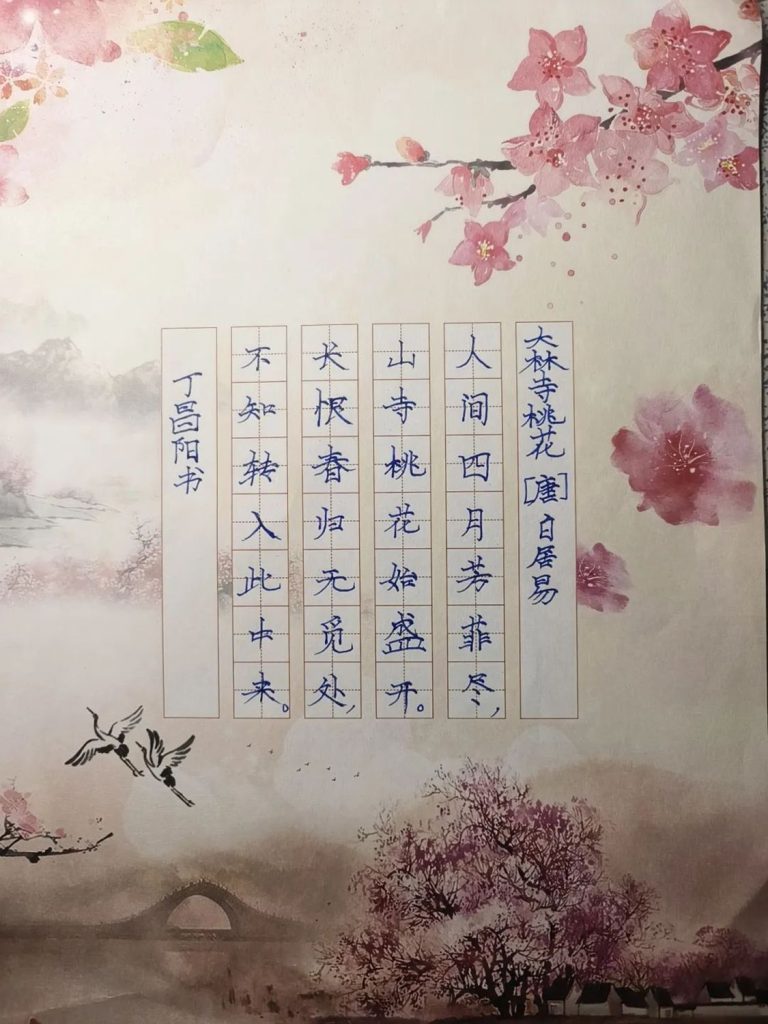 大林寺桃花 [唐] 白居易
人间四月芳菲尽，
山寺桃花始盛开。
长恨春归无觅处，
不知转入此中来。
丁昌阳书